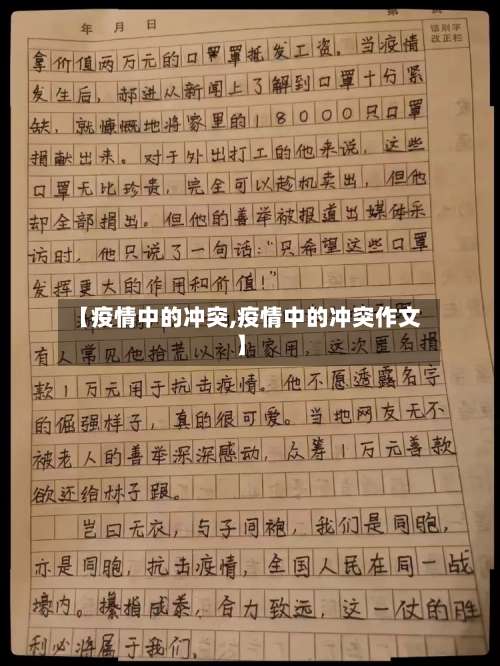 年 月 日
错别字
改正栏
拿价值两万元的口罩罩抵发工资。当疫情
发生后,郝进从新闻上了解到口罩十分紧
缺,就慷慨地将家里的18000只口罩
捐献出来。对于外出打工的他来说,这些
口罩无比珍贵,完全可以趁机卖出,但他
却全部捐出。但他的善举被报道出媒体采
访时,他只说了一句话:“只希望这些口罩
发挥更大的作用和价值!”
【疫情中的冲突,疫情中的冲突作文
】
有人常见他拾荒以补贴家用,这次匿名捐
款1万元用于抗击疫情。他不愿透露名字
的倔强样子,真的很可爱。当地网友无不
被老人的善举深深感动,众筹1万元善款
欲还给林子跟。
岂曰无衣,与子同袍,我们是同胞,
亦是同胞,抗击疫情,全国人民在同一战
壕内。攥指成拳,合力致远,这一仗的胜
利必将属于我们。